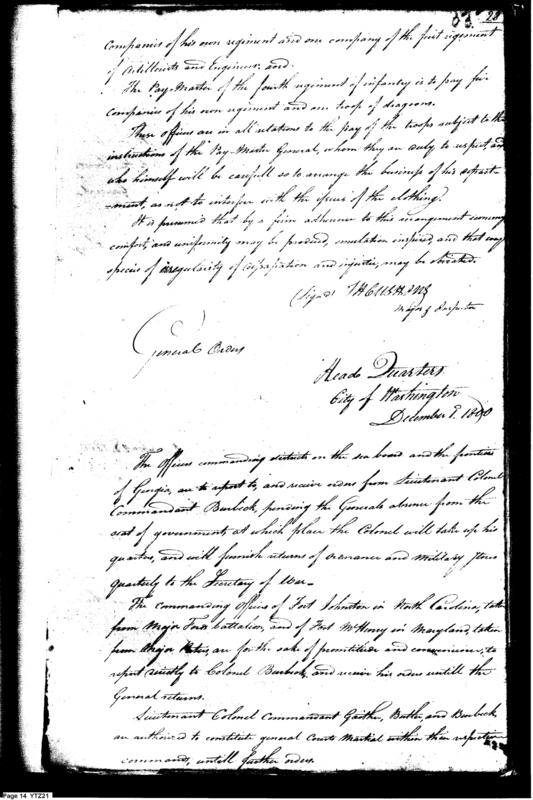 28
companies of his own regiment and one company of the first regiment
of Artillerists and Engineers: and
The Pay-Master of the fourth regiment of infantry is to pay five
companies of his own regiment and one troop of dragoons.
These officers are in all relations to the pay of the troops subject to the
instructions of the Pay-Master General, whom they are duly to respect and
who himself will be carefull so to arrange the business of his depart
-ment, as not to interfere with the issues of the clothing.
It is presumed that by a firm adherence to this arrangement
comfort, and uniformity may be produced, emulation inspired, and that every
species of irregularity of and injustice, may be
(Signed) T H CUSHING
Major & Inspector
General Orders
Head Quarters
City of Washington
December 9. 1800
The Officers commanding districts on the sea board and the frontiers
of Georgia, are to report to, and receive orders from Lieutenant Colonel
Commandant Burbeck, pending the Generals absence from the
seat of government, at which place the Colonel will take up his
quarters, and will furnish returns of ordnance and military stores
quarterly to the Secretary of War—
The commanding officers of Fort Johnston in North Carolina, taken
from Major battalion, and of Fort McHenry in Maryland, taken
from Major are for the sake of promtitude and convenience, to
report directly to Colonel Burbeck, and receive his orders untill the
General returns.
Lieutenant Colonel Commandant Gaither, Butler, and Burbeck,
are authorized to constitute general Courts Martial within their respective
commands, untill further orders.
Page 14 YTZ21